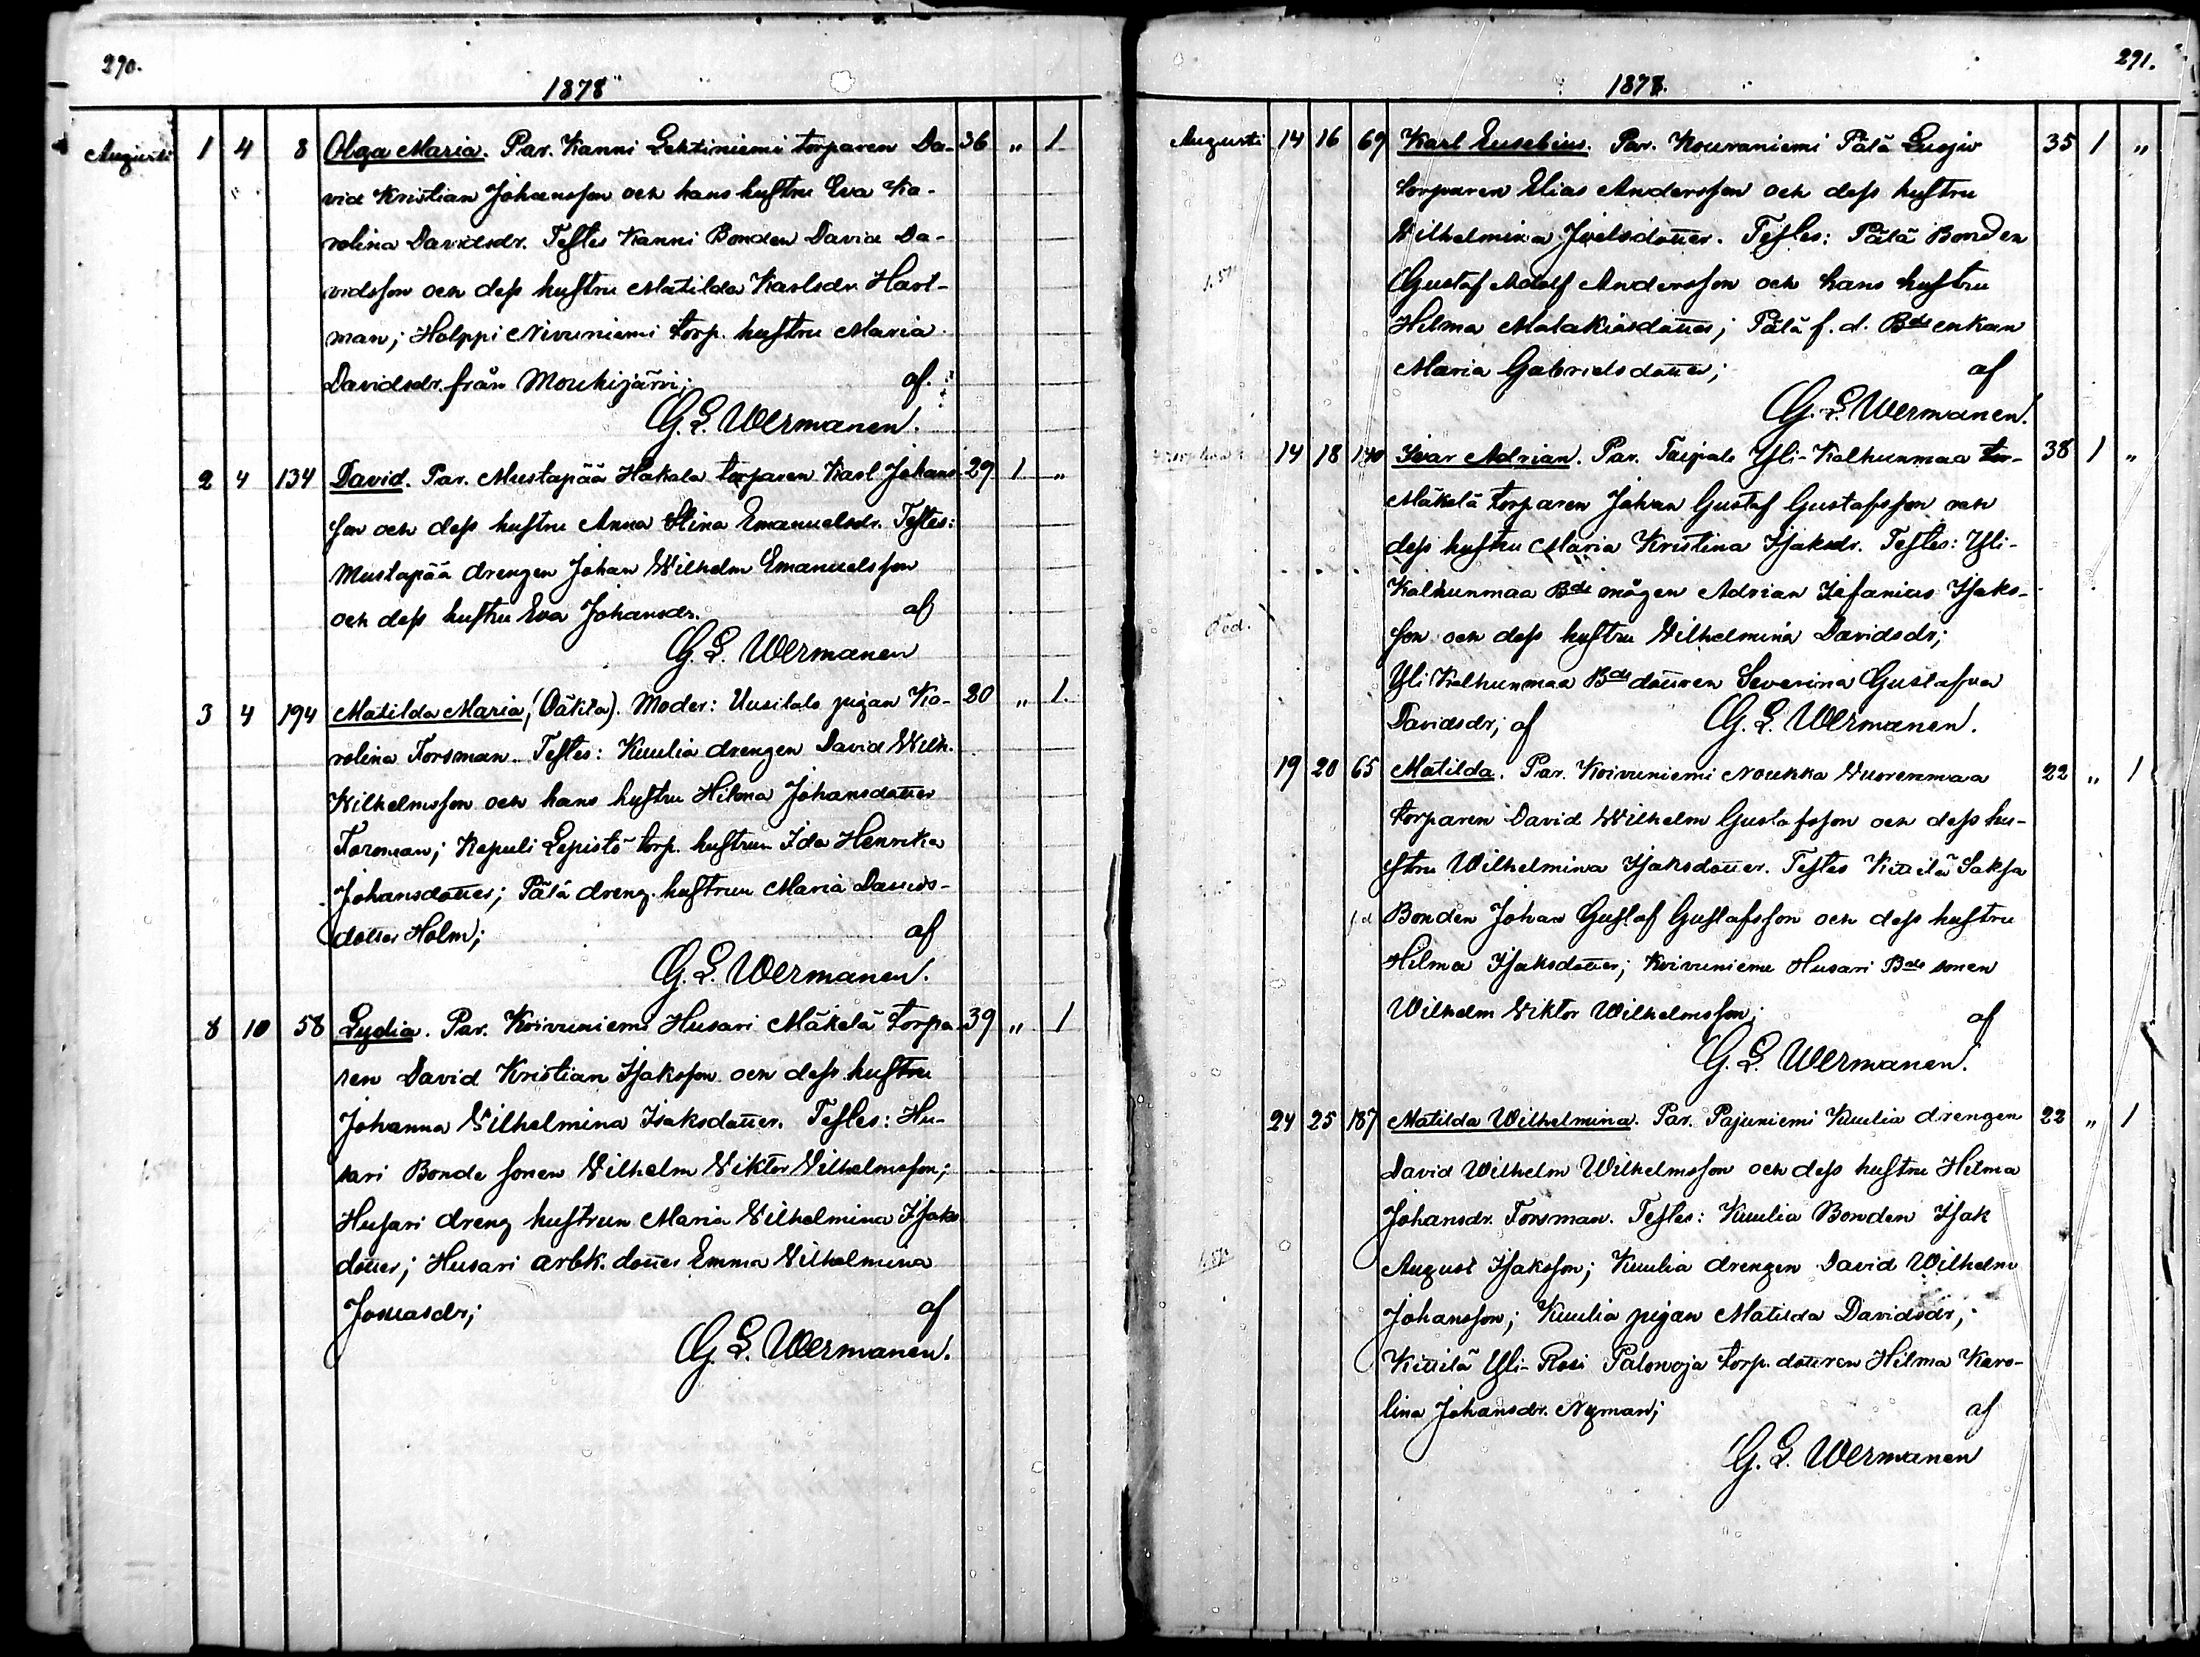 290.
1878
Augusti 1 4 8 Olga Maria. Par. Kanni Lehtiniemi torparen Da- 36 " 1
vid Kristian Johansson och hans hustru Eva Ka-
rolina Davidsdr. Testes Kanni Bonden David Da-
vidsson och dess hustru Matilda Karlsdr Hart-
man; Holppi Nivuniemi torp. hustru Maria
Davidsdr. från Mouhijärvi; af.
G. L. Wermanen.
2 4 134 David. Par. Mustapää Hakala torparen Karl Johans- 29 1 "
son och dess hustru Anna Stina Emanuelsdr. Testes:
Mustapää drengen Johan Wilhelm Emanuelsson
och dess hustru Eva Johansdr. af
G. L. Wermanen
3 4 194 Matilda Maria, (Oäkta). Moder: Uusitalo pigan Ka- 20 " 1.
rolina Forsman. Testes: Kuulia drengen David Wilh.
Wilhelmsson och hans hustru Hilma Johansdotter
Forsman; Kapuli Lepistö torp. hustrun Ida Henrika
Johansdotter; Pälä dreng. hustrun Maria Davids-
dotter Holm; af
G. L. Wermanen.
8 10 58 Lydia. Par. Koivuniemi Husari Mäkelä torpa- 39 " 1
ren David Kristian Isaksson och dess hustru
Johanna Wilhelmina Isaksdotter. Testes: Hu-
sari Bonde sonen Wilhelm Viktor Wilhelmsson;
Husari dreng hustrun Maria Wilhelmina Isaks
dotter; Husari arbk. dotter Emma Wilhelmina
Josuasdr; af
G. L. Wermanen.
291.
1878.
Augusti 14 16 69 Karl Eusebius. Par. Kouraniemi Pälä 35 1 "
torparen Elias Andersson och dess hustru
Wilhelmina Joelsdotter. Testes: Pälä Bonden
Gustaf Adolf Andersson och hans hustru
Hilma Malakiasdotter; Pälä f. d. Bds enkan
Maria Gabrielsdotter; af
G. L. Wermanen.
14 18 140 Ivar Adrian. Par. Taipale Yli-Kalhunmaa tor- 38 1 "
Mäkelä torparen Johan Gustaf Gustafsson och
dess hustru Maria Kristina Isaksdr. Testes: Yli-
Kalhunmaa Bds mågen Adrian Isaks-
son och dess hustru Wilhelmina Davidsdr;
Död.
Yli Kalhunmaa Bds dottren Severina Gustafva
Davidsdr; af G. L. Wermanen.
19 20 65 Matilda. Par. Koivuniemi Noukka Vuorenmaa 22 " 1
torparen David Wilhelm Gustafsson och dess hu-
stru Wilhelmina Isaksdotter. Testes Kittilä Saksa
f.d Bonden Johan Gustaf Gustafsson och dess hustru
Hilma Isaksdotter; Koivuniemi Husari Bds sonen
Wilhelm Viktor Wilhelmsson; af
G. L. Wermanen.
24 25 187 Matilda Wilhelmina. Par. Pajuniemi Kuulia drengen 22 " 1
David Wilhelm Wilhelmsson och dess hustru Hilma
Johansdr. Forsman. Testes: Kuulia Bonden Isak
August Isaksson; Kuulia drengen David Wilhelm
Johansson; Kuulia pigan Matilda Davidsdr;
Kittilä Yli-Rosi Palonoja torp. dottren Hilma Karo-
lina Johansdr. Nyman; af
G. L. Wermanen